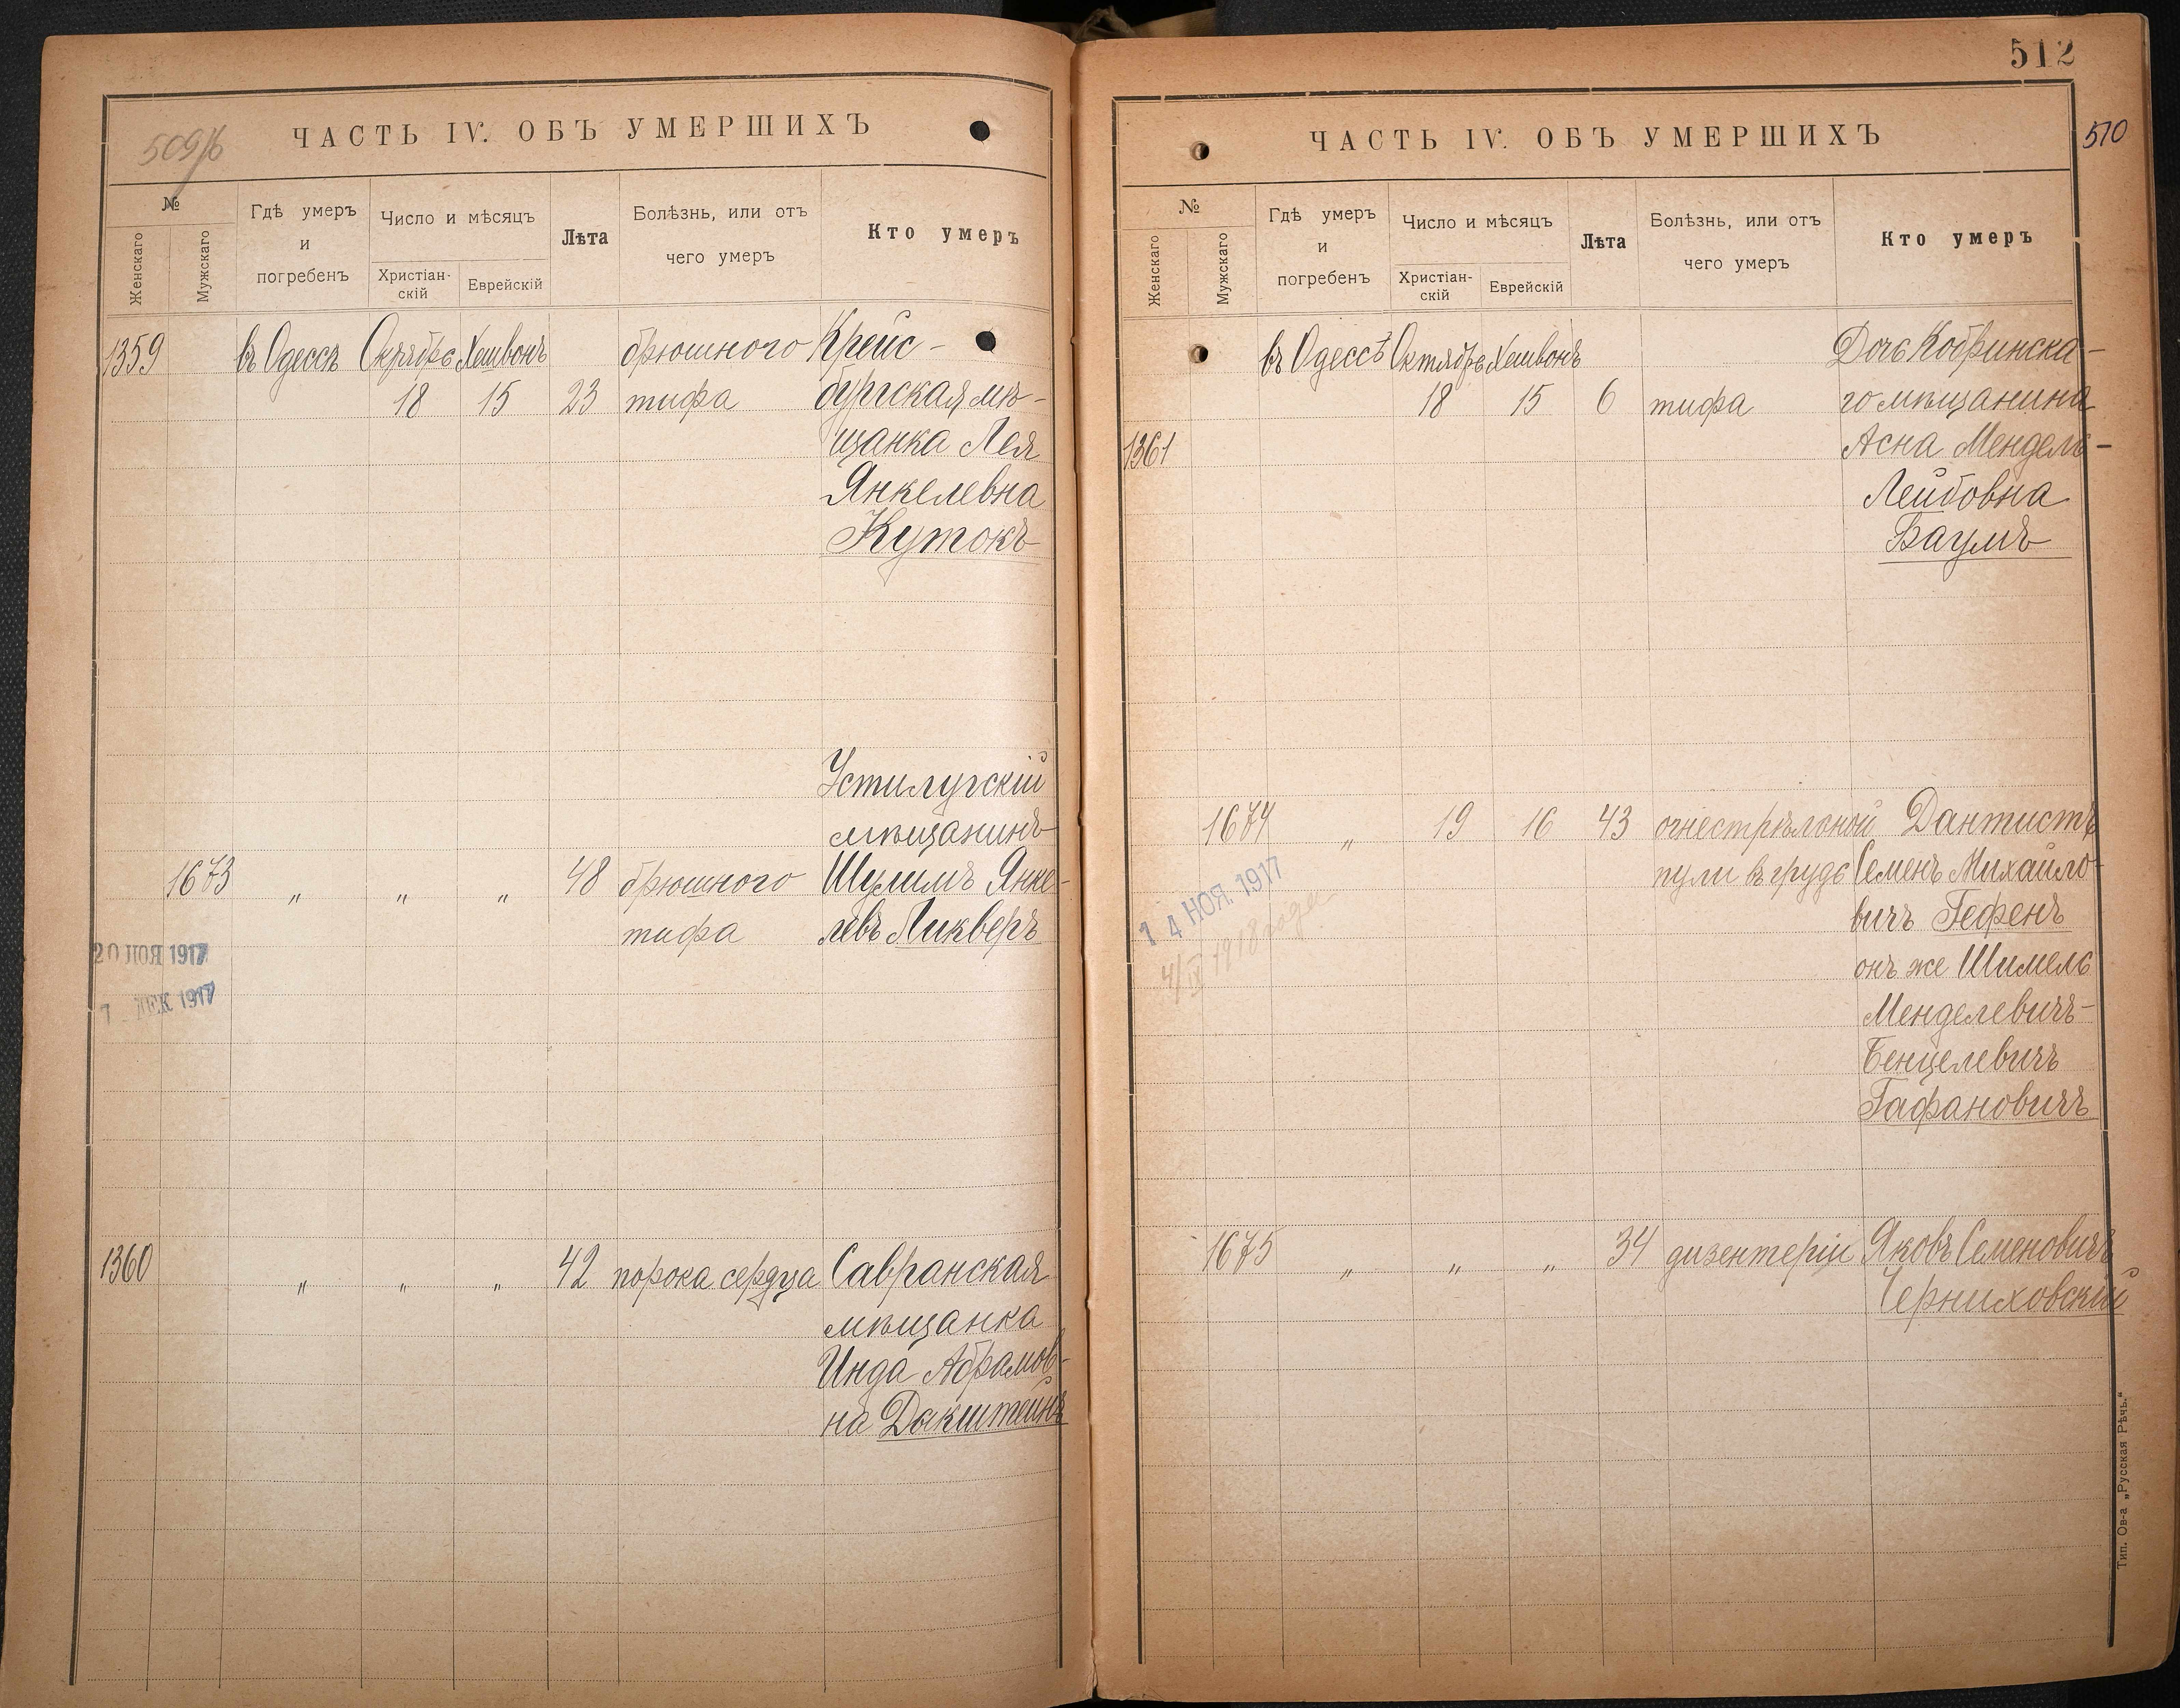 509/б
ЧАСТЬ IV. ОБЪ УМЕРШИХЪ
№
Женскаго
Мужскаго
Гдѣ умеръ
и
погребенъ
Число и мѣсяцъ
Христіан-
скій
Еврейскій
Лѣта
Болѣзнь, или отъ
чего умеръ
Кто умеръ
1359 въ Одессѣ Октябрь Хешвонъ брюшного Крейс-
18 15 23 тифа бургская мѣ-
щанка Лея
Янкелевна
Кутокъ
Устилугскій
мѣщанинъ
1673 „ „ „ 48 брюшного Шулимъ Янке-
тифа левъ Ликверъ
20 НОЯ 1917
7 ДЕК 1917
1360 „ „ „ 42 порока сердца Савранская
мѣщанка
Инда Абрамов-
на Дакштейнъ
512
510
ЧАСТЬ IV. ОБЪ УМЕРШИХЪ
№
Женскаго
Мужскаго
Гдѣ умеръ
и
погребенъ
Число и мѣсяцъ
Христіан-
скій
Еврейскій
Лѣта
Болѣзнь, или отъ
чего умеръ
Кто умеръ
въ Одессѣ Октябрь Хешвонъ Дочь Кобринска-
18 15 6 тифа го мѣщанина
1361 Асна Мендель-
Лейбовна
Баумъ
1674 „ 19 16 43 огнестрѣльной Дантистъ
пули въ грудь Семенъ Михайло-
вичъ Гефенъ
14 НОЯ. 1917
4/IV 1918 года
онъ же Шимель
Менделевичъ-
Бенцелевичъ
Гафановичъ
1675 „ „ „ 34 дизентеріи Яковъ Семеновичъ
Черниховскій
Тип. Ов-а „Русская Рѣчь.“